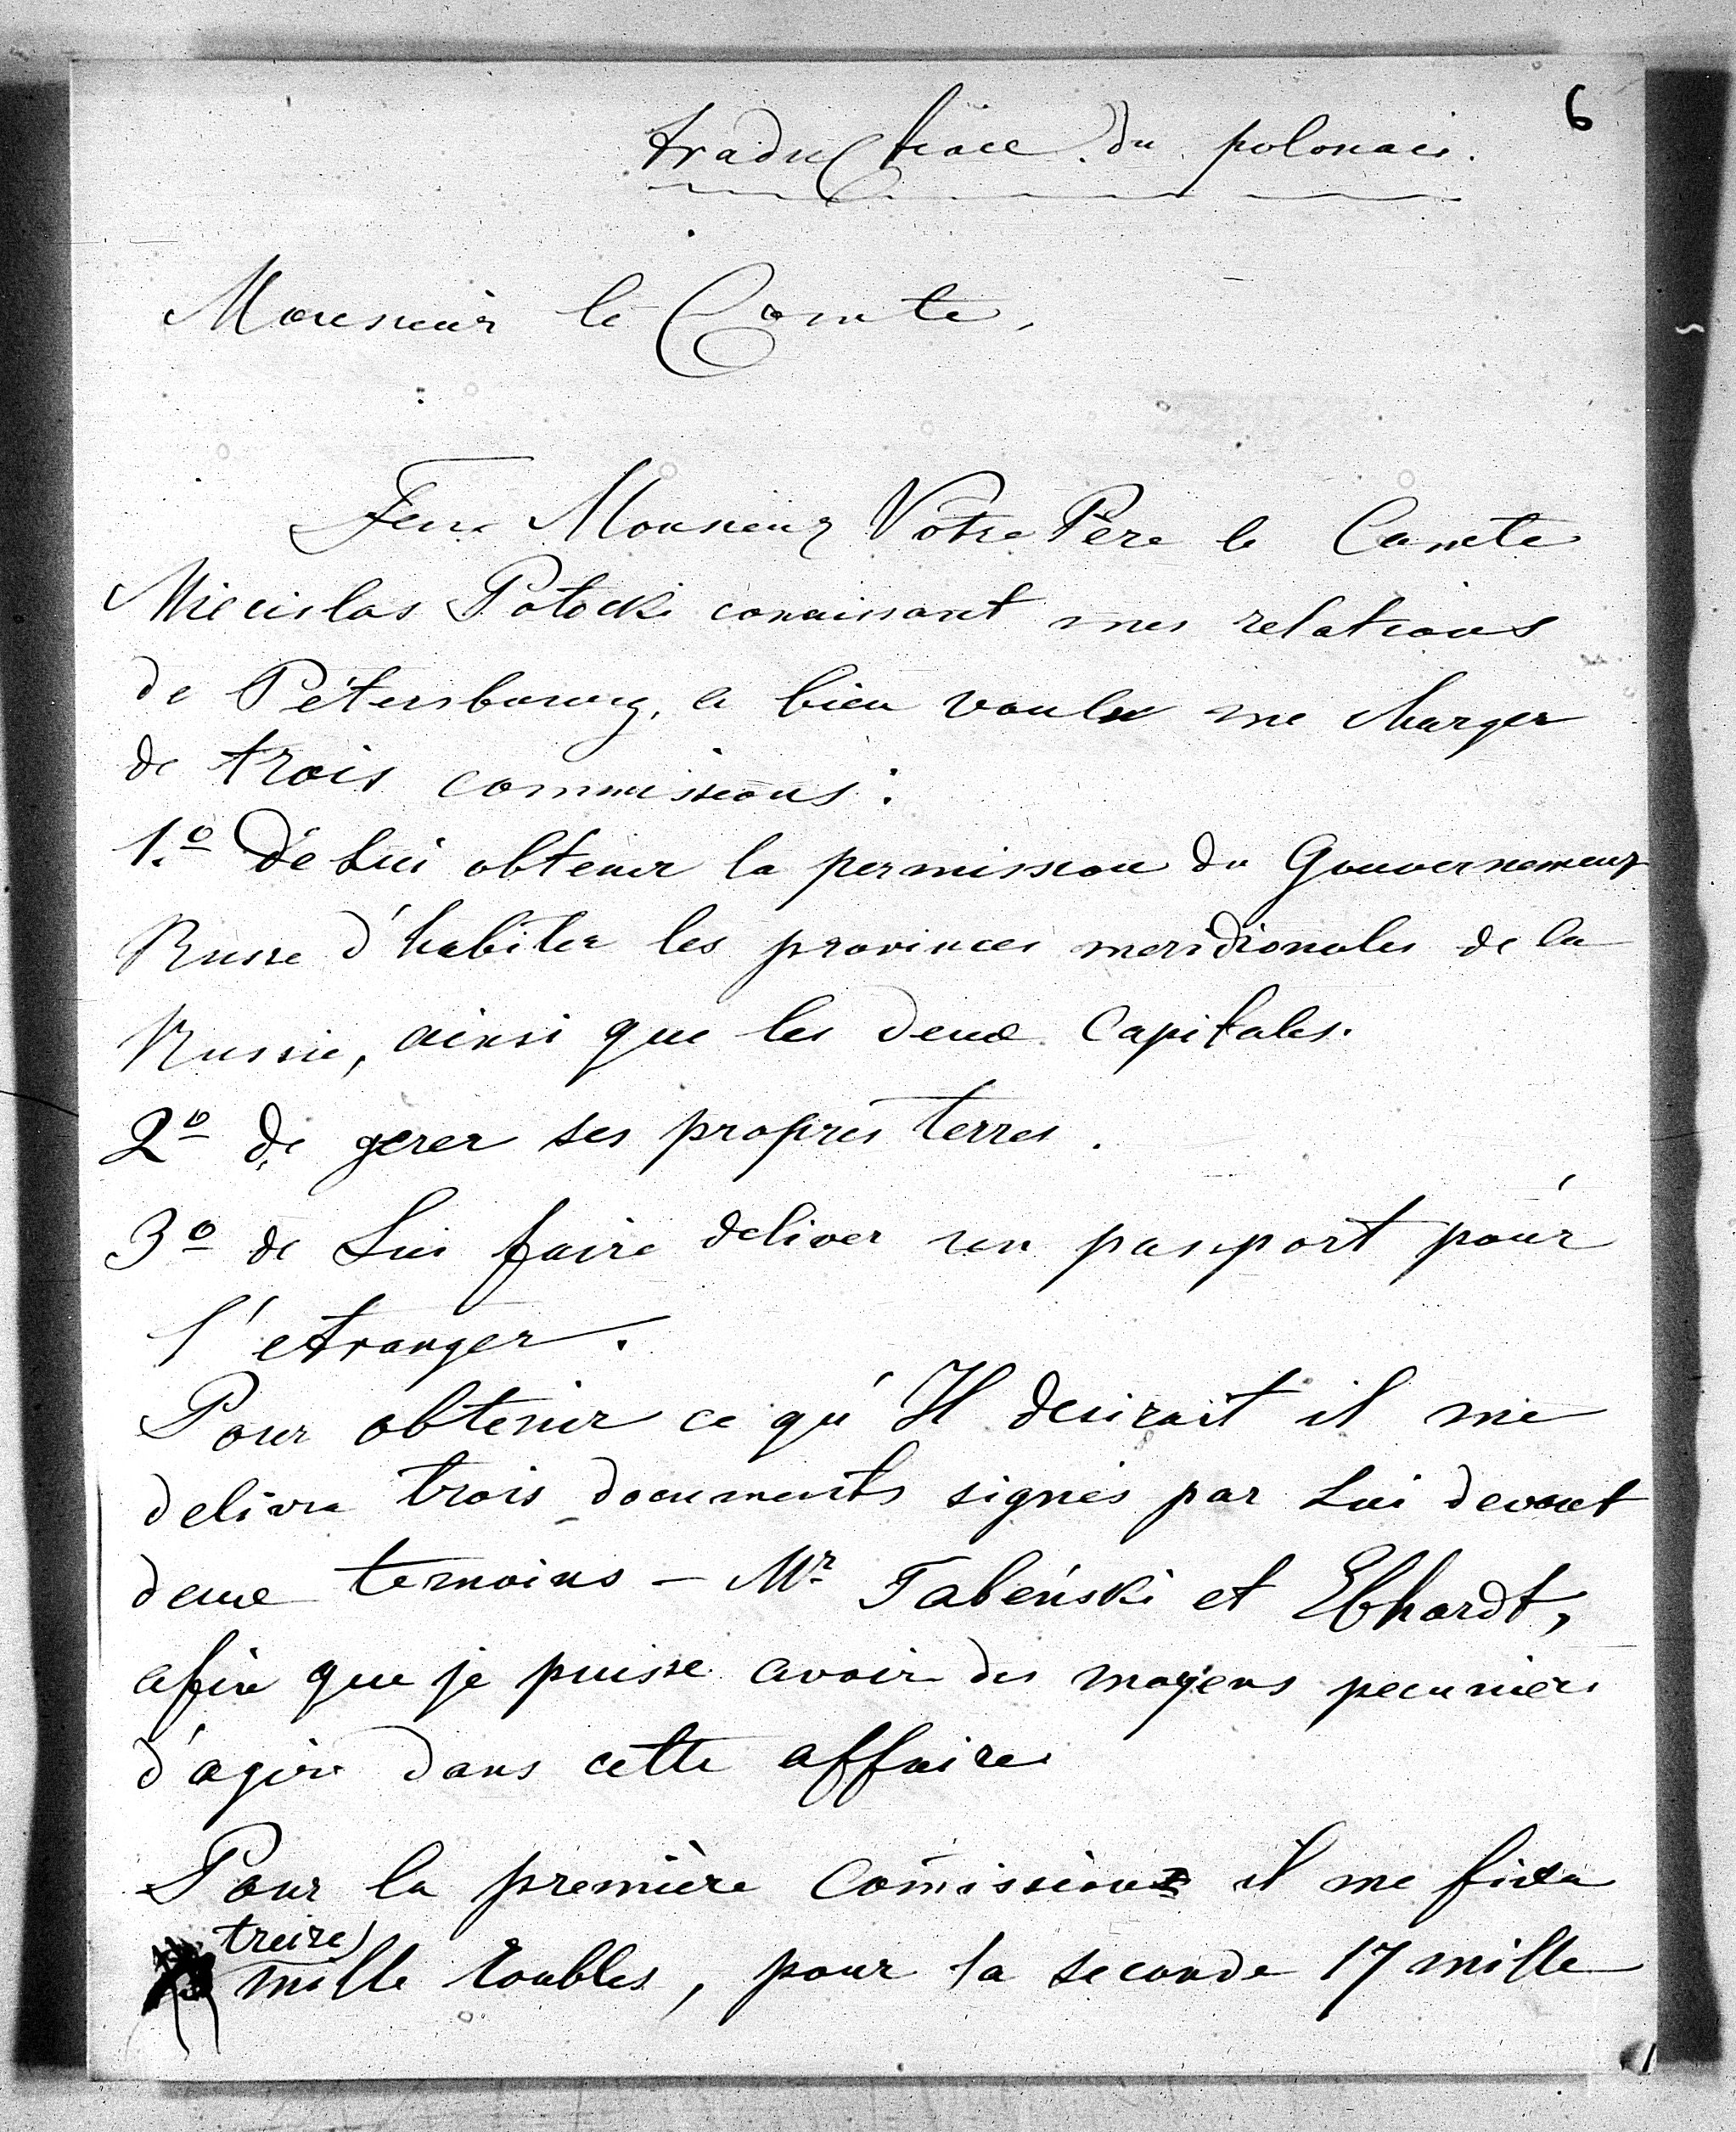 6
traduction du polonais.
Monsieur le Comte,
Feu Monsieur Votre Père le Comte
Miecislas Potocki conaissant mes relations
de Pétersbourg, a bien voulu me charger
de trois commissions:
1.º De Lui obtenir la permission du Gouvernement
Russe d'habiter les provinces meridionales de la
Russie, ainsi que les deux Capitales.
2º de gerer ses propres terres.
3º de Lui faire deliver un pasport pour
l'etranger.
Pour obtenir ce qu'Il desirait il me
delivra trois documents signés par Lui devant
deux temoins - Mr Tabeński et Ebhardt,
afin que je puisse avoir des moyens pecuniers
d'agir dans cette affaire
Pour la première Comission il me fixa
treize
mille roubles, pour la seconde 17 mille